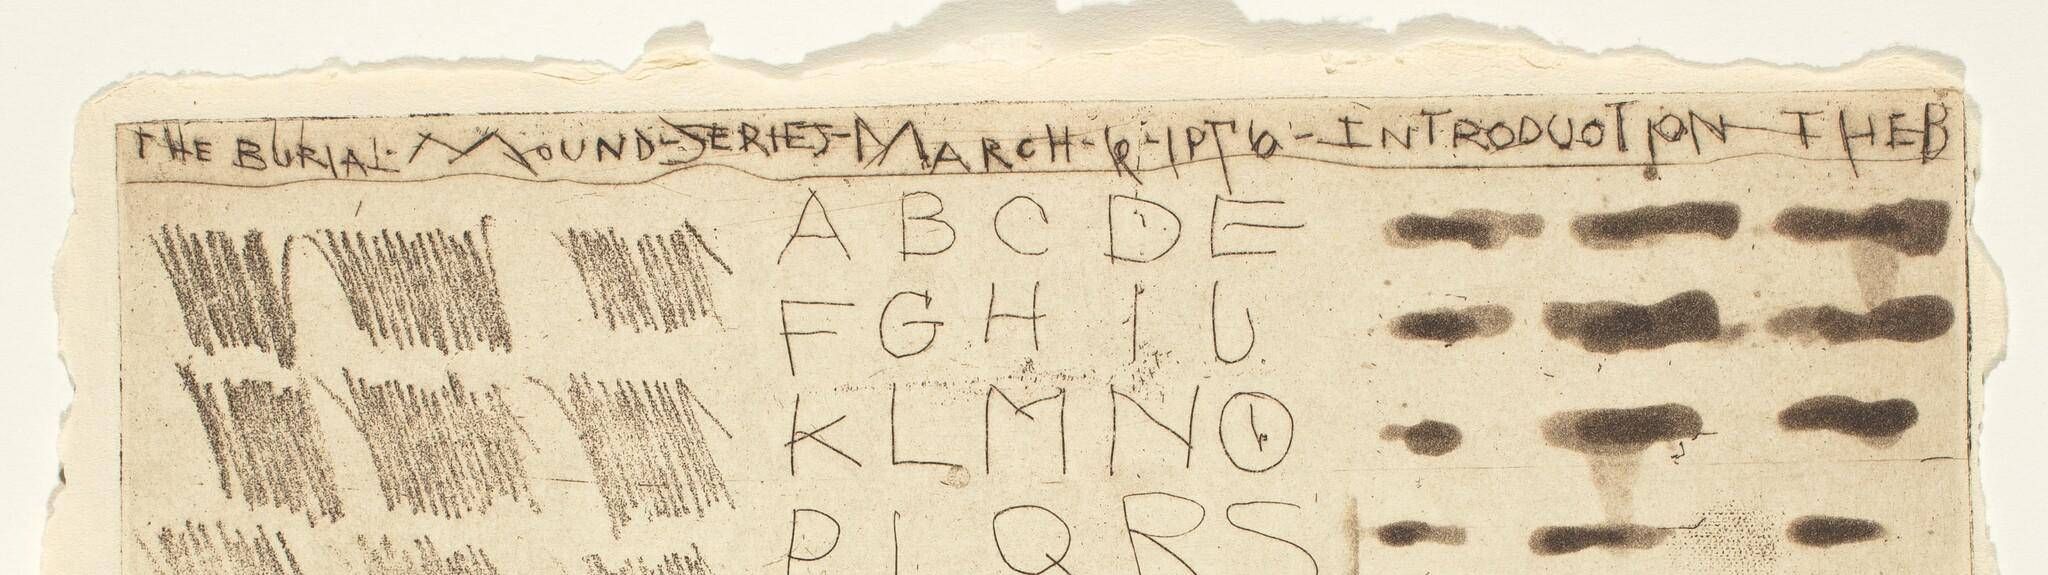 THE BURIAL MOUND-SERIES-MARCH-6-1PT6-INTRODUOTION THEB
A B C D E
F G H I U
K L M N O
P I Q R S